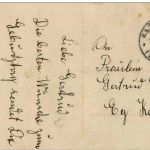 Liebe Gertrud!
Die besten Wünsche zum
Geburtstag sendet Dir
An
Fräulein
Gertrud